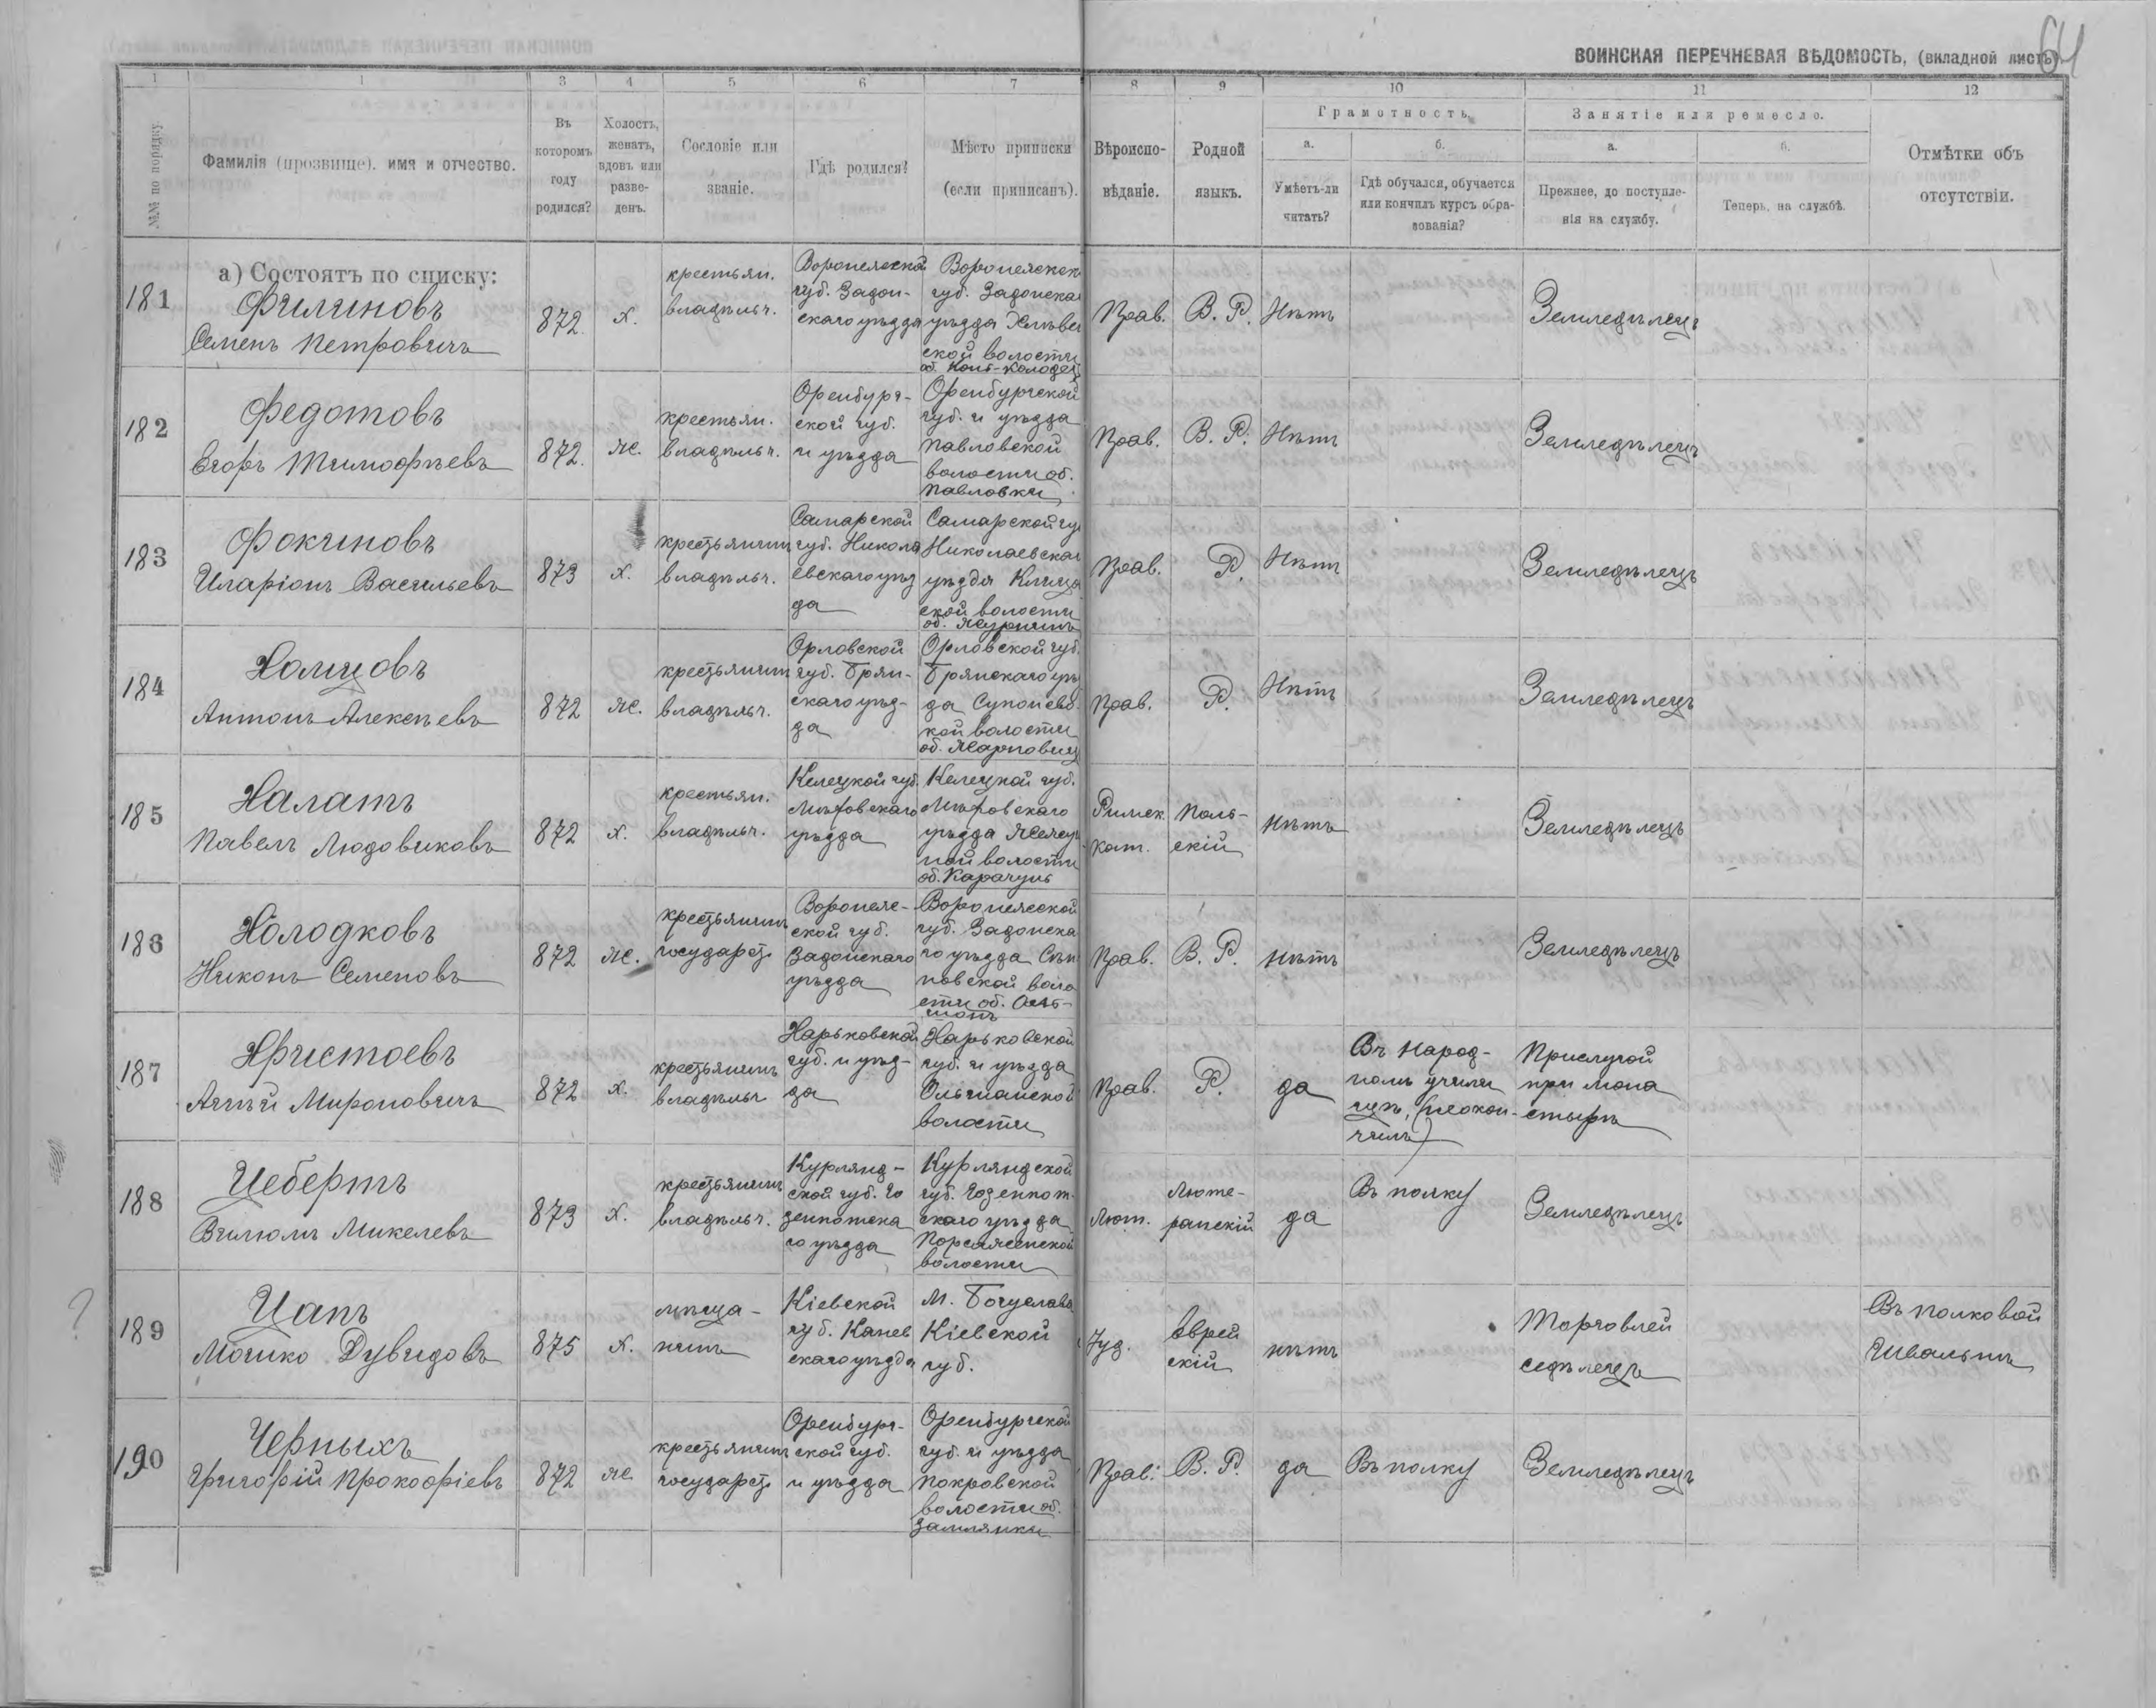 64
ВОИНСКАЯ ПЕРЕЧНЕВАЯ ВѢДОМОСТЬ, (вкладной листъ)
1 1 3 4 5 6 7 8 9 10 11 12
№№ по порядку.
Фамилія (прозвище), имя и отчество.
Въ которомъ году родился?
Холостъ, женатъ, вдовъ или разве-денъ.
Сословіе или званіе.
Гдѣ родился?
Мѣсто приписки (если приписанъ).
Вѣроиспо-вѣданіе.
Родной языкъ.
Грамотность.
а.
Умѣетъ-ли читать?
б.
Гдѣ обучался, обучается или кончилъ курсъ обра-зованія?
Занятіе или ремесло.
а.
Прежнее, до поступле-нія на службу.
б.
Теперь, на службѣ.
Отмѣтки объ отсутствіи.
а) Состоятъ по списку:
181
Филиновъ
Семенъ Петровичъ
872.
х.
крестьян.
владѣльч.
Воронежской
губ. Задон-
скаго уѣзда
Воронежской
губ. Задонска
уѣзда
ской волости
об. Конь-Колодезь
Прав.
В. Р.
Нѣтъ
Земледѣлецъ
182
Федотовъ
Егоръ Тимофѣевъ
872.
ж.
крестьян.
владѣльч.
Оренбург-
ской губ.
и уѣзда
Оренбургской
губ. и уѣзда
Павловской
волости об.
Павловки
Прав.
В. Р.
Нѣтъ
Земледѣлецъ
183
Фокиновъ
Иларіонъ Васильевъ
873
х.
крестьянинъ
владѣльч.
Самарской
губ. Никола
евскаго уѣз
да
Самарской гу
Николаевскаг
уѣзда
ской волости
об.
Прав.
Р.
Нѣтъ
Земледѣлецъ
184
Хомцовъ
Антонъ Алексѣевъ
872
ж.
крестьянинъ
владѣльч.
Орловской
губ. Брян-
скаго уѣз-
да
Орловской губ.
Брянскаго уѣз
да Супоневс
кой волости
об.
Прав.
Р.
Нѣтъ
Земледѣлецъ
185
Халатъ
Павелъ Людовиковъ
872
х.
крестьян.
владѣльч.
Келецкой губ.
Мѣховскаго
уѣзда
Келецкой губ.
Мѣховскаго
уѣзда
ной волости
об.
Римск.
кат.
Поль-
скій
нѣтъ
Земледѣлецъ
186
Холодковъ
Никонъ Семеновъ
872
ж.
крестьянинъ
государст.
Воронеж-
ской губ.
Задонскаго
уѣзда
Воронежской
губ. Задонска
го уѣзда
новской воло
сти об.
Прав.
В. Р.
нѣтъ
Земледѣлецъ
187
Христоевъ
Агѣй Мироновичъ
872
х.
крестьянинъ
владѣльч
Харьковской
губ. и уѣз-
да
Харьковской
губ. и уѣзда
Ольшанской
волости
Прав.
Р.
да
Въ народ-
номъ учили
щѣ, (неокон-
чилъ)
Прислугой
при мона
стырѣ
188
Цебертъ
Вилюмъ Микелевъ
873
х.
крестьянинъ
владѣльч.
Курлянд-
ской губ. Га
зенпотска
го уѣзда
Курляндской
губ. Газенпот
скаго уѣзда
волости
Лют.
Люте-
ранскій
да
Въ полку
Земледѣлецъ
?
189
Цапъ
Мошко Дувидовъ
875
х.
мѣща-
нинъ
Кіевской
губ. Канев
скаго уѣзда
М. Богуслава
Кіевской
губ.
Іуд.
еврей
скій
нѣтъ
Торговлей
Въ полковой
Швальнѣ
190
Черныхъ
Григорій Прокофіевъ
872
ж
крестьянинъ
государст.
Оренбург-
ской губ.
и уѣзда
Оренбургской
губ. и уѣзда
Покровской
волости об.
Замлянки
Прав.
В. Р.
да
Въ полку
Земледѣлецъ